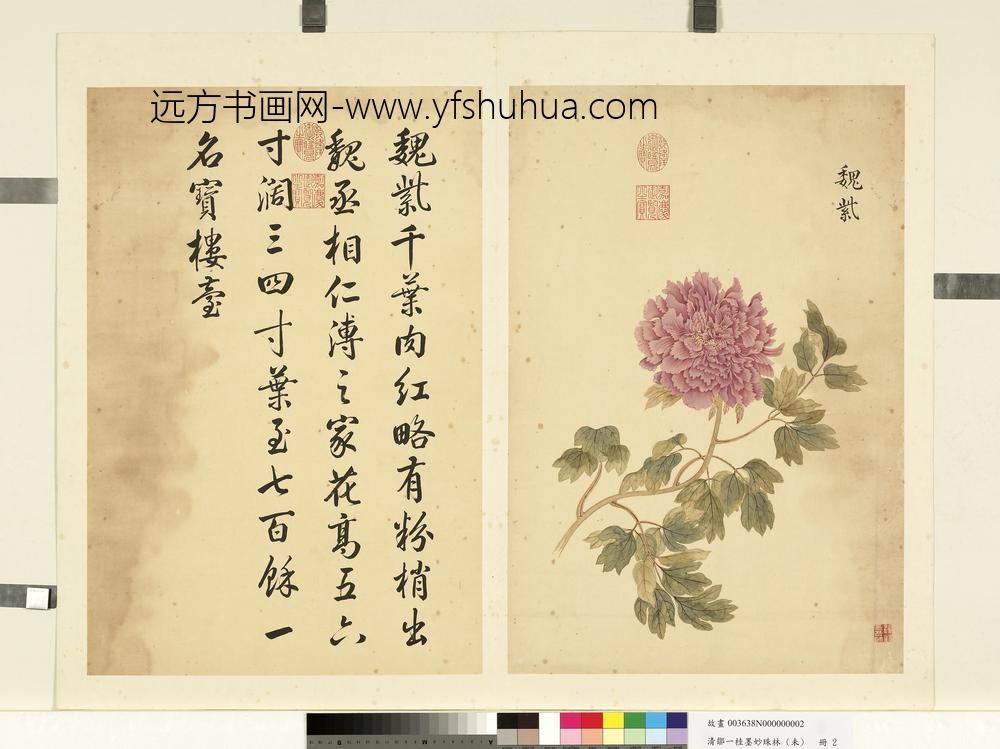 远方书画网-www.yfshuhua.com
魏紫
魏紫千葉肉紅略有粉梢出
魏丞相仁溥之家花高五六
寸阔三四寸葉至七百餘一
名寳樓臺
故畫 003638N000000002
清鄒一桂墨妙珠林（未） 冊 2